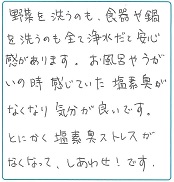 野菜を洗うのも、食器や鍋
を洗うのも全て浄水だと安心
感があります。お風呂やうが
いの時感じていた塩素臭が
なくなり気分が良いです。
とにかく塩素臭ストレスが
なくなって、しあわせ！です。